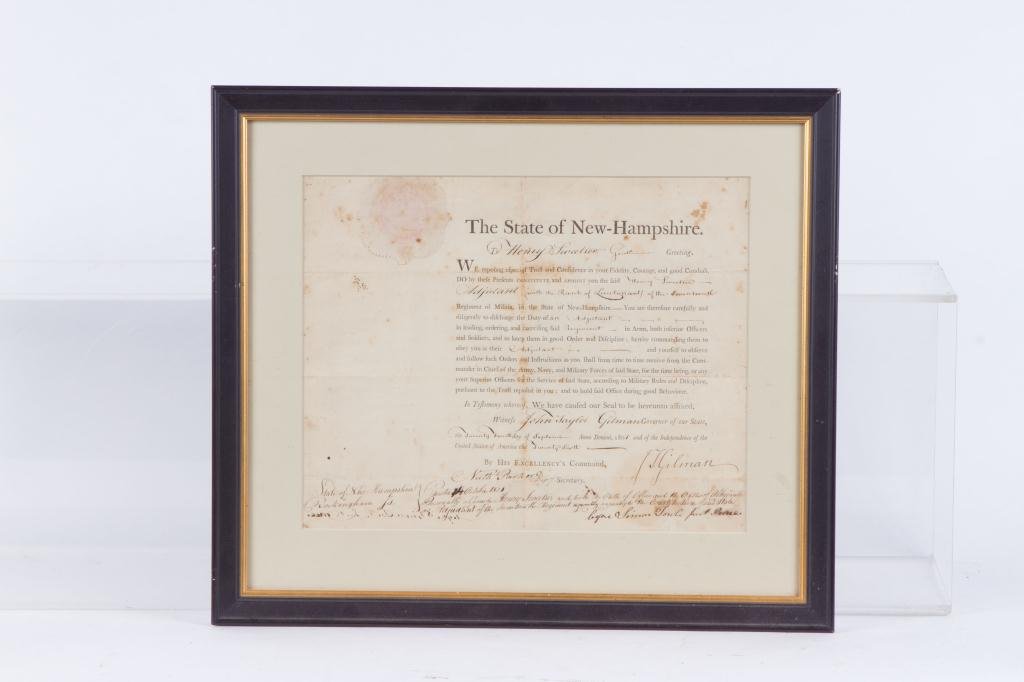 The State of New-Hampshire.
To Henry Sweetser Greeting.
WE reposing especial Trust and Confidence in your Fidelity, Courage, and good Conduct,
DO by these Presents CONSTITUTE and APPOINT you the said Henry Sweetser
Adjutant with the Rank of Lieutenant of the Seventeenth
Regiment of Militia, in the State of New-Hampshire.—You are therefore carefully and
diligently to discharge the Duty of an Adjutant
in leading, ordering, and exercising said Regiment in Arms, both inferior Officers
and Soldiers, and to keep them in good Order and Discipline; hereby commanding them to
obey you as their Adjutant and yourself to observe
and follow such Orders and Instructions as you shall from time to time receive from the Com-
mander in Chief of the Army, Navy, and Military Forces of said State, for the time being, or any
your Superior Officers for the Service of said State, according to Military Rules and Discipline,
pursuant to the Trust reposed in you; and to hold said Office during good Behaviour.
In Testimony whereof, We have caused our Seal to be hereunto affixed,
Witness John Taylor Gilman Governor of our State,
the Anno Domini, 1801 and of the Independence of the
United States of America the Twenty Sixth
By HIS EXCELLENCY's Command,
J T Gilman
Nath Parker Dpy Secretary.
State of New Hampshire
Rockingham ss October 1801
Personally Henry Sweetser and took the
Adjutant of the Regiment
before Simon